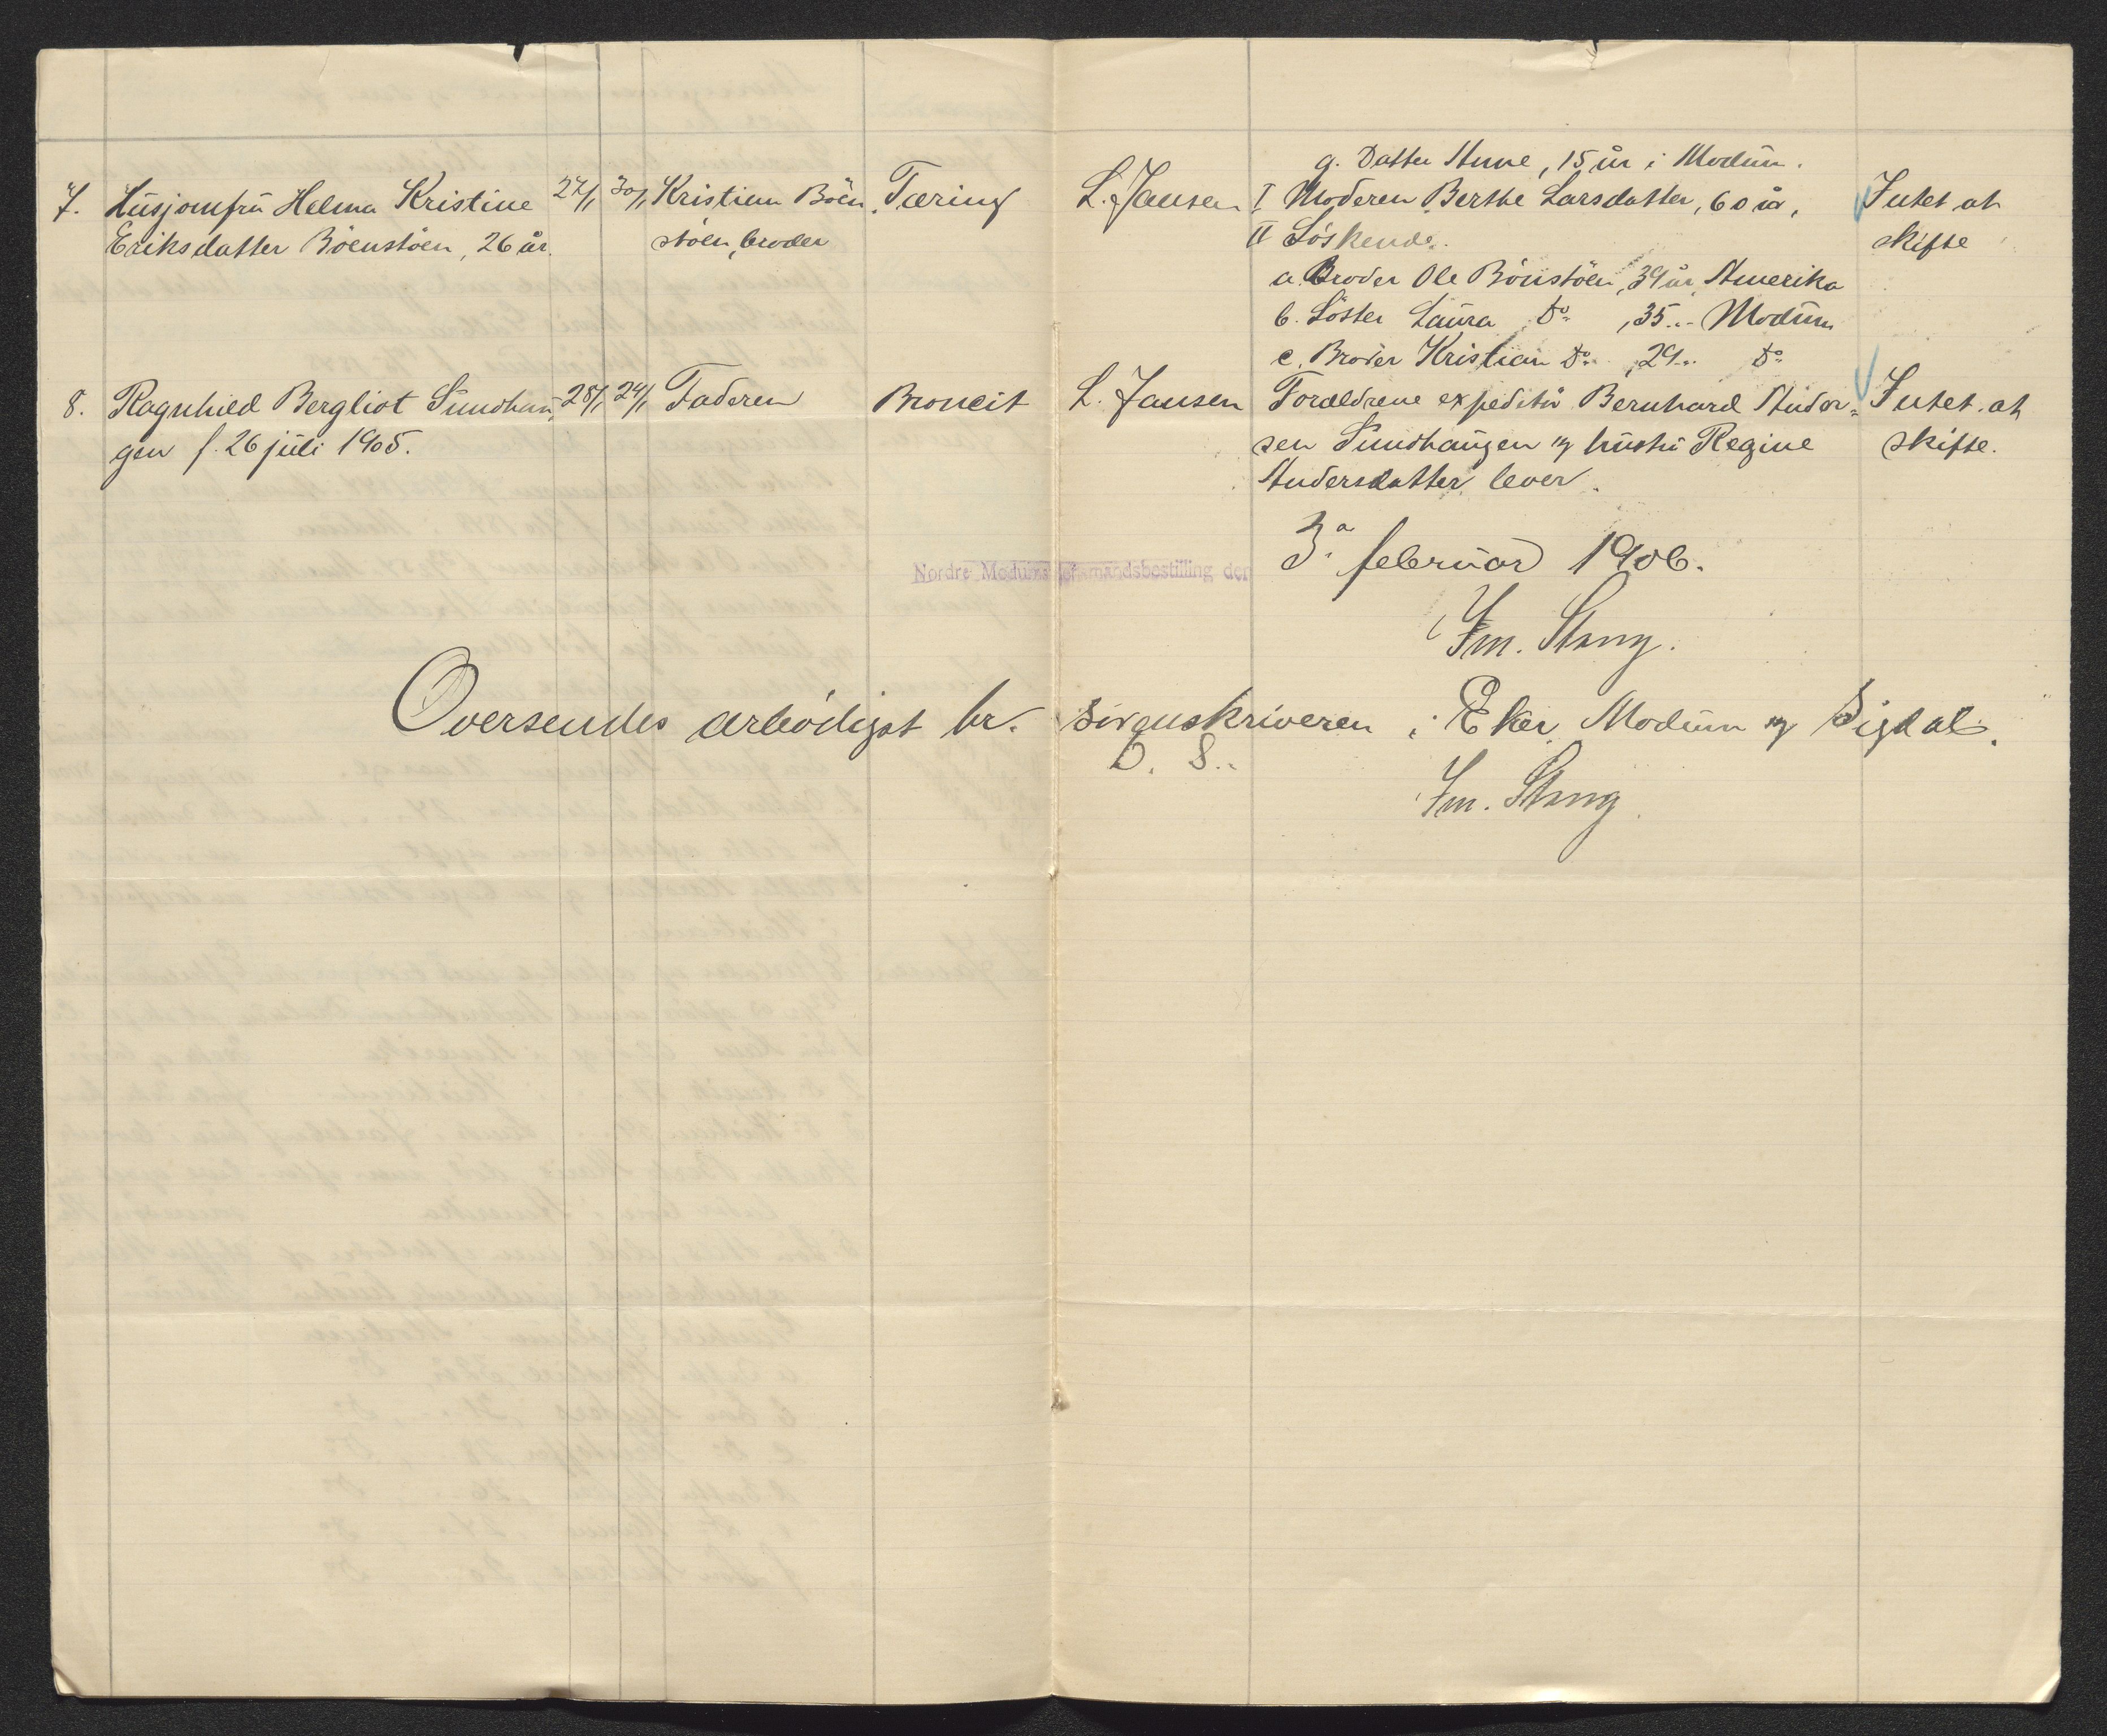 g. Datter Anne, 15 år i Modum.
7. Husjomfru Helma Kristine 27/1 30/1 Kristian Böen Tæring L. Jansen I Moderen Berthe Larsdatter, 60 år, Intet at
Eriksdatter Böenstöen, 26 år. stöen, broder II Söskende. skifte
a. Broder Ole Bönstöen, 39 år, Amerika
b. Söster Laura Do , 35 .. - Modum
c. Broder Kristian Do , 29 .. Do
8. Ragnhild Bergliot Sundhau 28/1 29/1 Faderen Broncit L. Jansen Forældrene expeditör Bernhard Ander= Intet at
gen f. 26 juli 1905. sen Sundhaugen og hustru Regine skifte.
Andersdatter lever.
Nordre Modums lensmandsbestilling den 3a februar 1906.
Fm. Stang.
Oversendes ærbödigst hr. sorenskriveren i Eker, Modum og Sigdal.
D. S.
Fm. Stang.